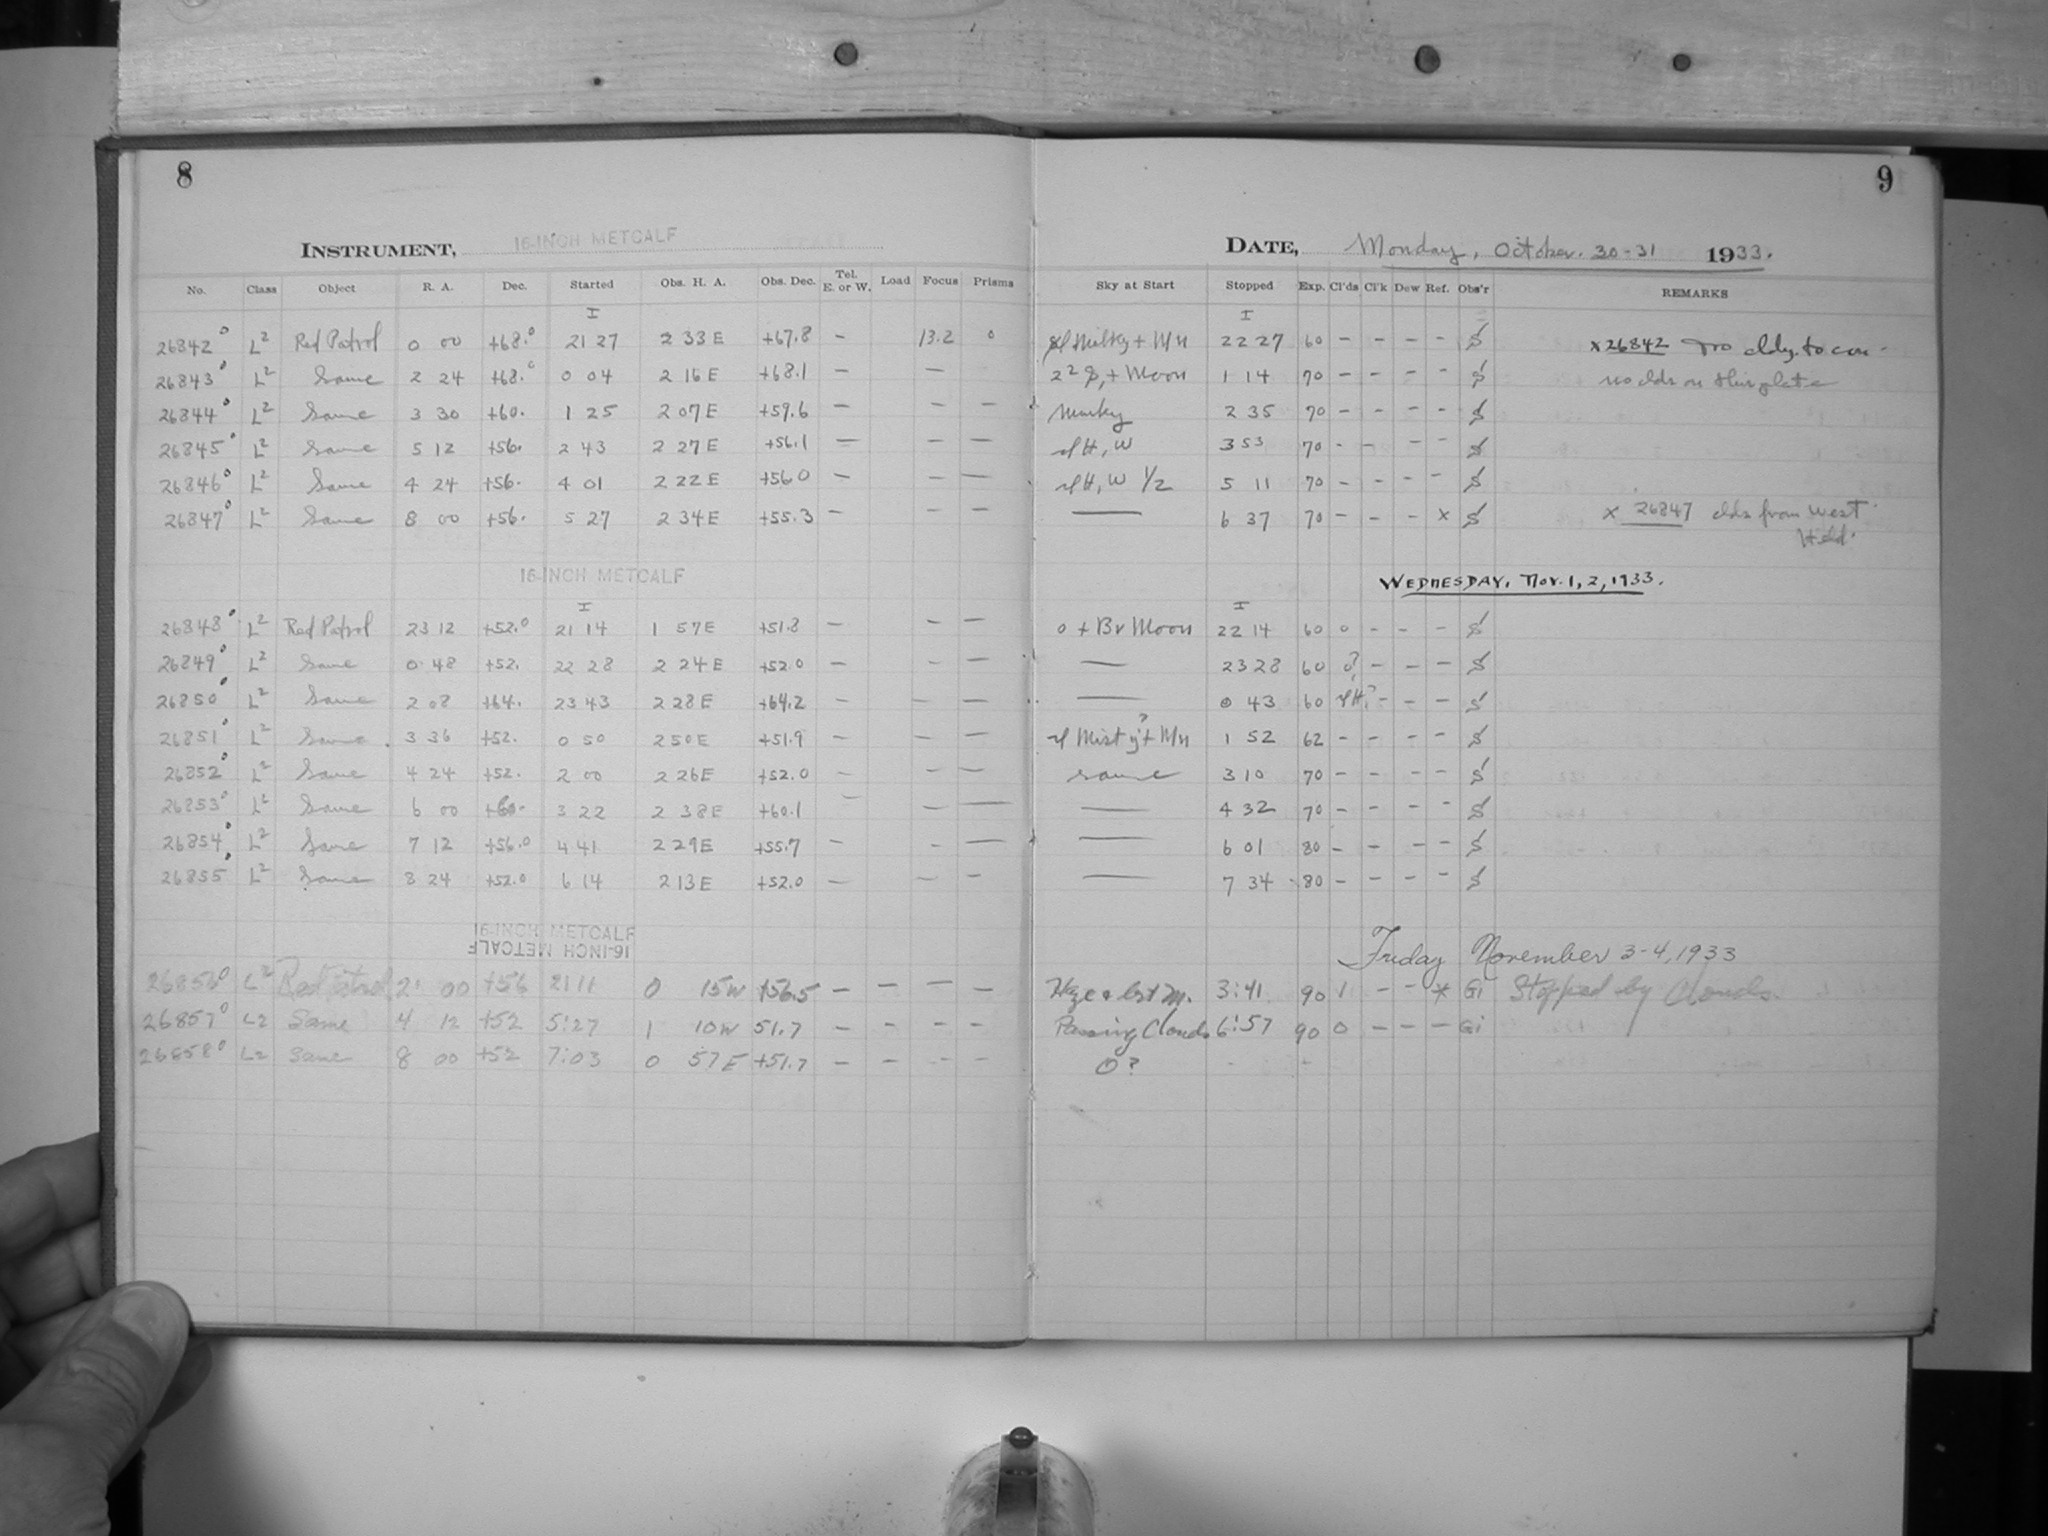 8
9
INSTRUMENT, 16-INCH METCALF
DATE, Monday, October. 30-31 1933.
No. Class Object R. A. Dec. Started Obs. H. A. Obs. Dec. Tel. E. or W. Load Focus Prisms Sky at Start Stopped Exp. Cl'ds Cl'k Dew Ref. Obs'r REMARKS
I I
26842° L² Red Patrol 0 00 +68.° 21 27 2 33 E +67.8 – 13.2 0 Milky + Mn 22 27 60 – – – – S x 26842 Too cldy. to con-
26843° L² Same 2 24 +68.° 0 04 2 16 E +68.1 – – + Moon 1 14 70 – – – – S no clds on this plate
26844° L² Same 3 30 +60. 1 25 2 07 E +59.6 – – – Murky 2 35 70 – – – – S
26845° L² Same 5 12 +56. 2 43 2 27 E +56.1 – – – H, W 3 53 70 – – – – S
26846° L² Same 4 24 +56. 4 01 2 22 E +56.0 – – – H, W 1/2 5 11 70 – – – – S
26847° L² Same 8 00 +56. 5 27 2 34 E +55.3 – – – — 6 37 70 – – – x S x 26847 clds from West
16-INCH METCALF
WEDNESDAY, Nov. 1, 2, 1933.
I I
26848° L² Red Patrol 23 12 +52.° 21 14 1 57 E +51.8 – – – 0 + Br Moon 22 14 60 0 – – – S
26849° L² Same 0 48 +52. 22 28 2 24 E +52.0 – – – — 23 28 60 0? – – – S
26850° L² Same 2 08 +64. 23 43 2 28 E +64.2 – – – — 0 43 60 H? – – – S
26851° L² Same 3 36 +52. 0 50 2 50 E +51.9 – – – Misty? + Mn 1 52 62 – – – – S
26852° L² Same 4 24 +52. 2 00 2 26 E +52.0 – – – same 3 10 70 – – – – S
26853° L² Same 6 00 +60. 3 22 2 38 E +60.1 – – – — 4 32 70 – – – – S
26854° L² Same 7 12 +56.0 4 41 2 29 E +55.7 – – – — 6 01 80 – – – – S
26855° L² Same 8 24 +52.0 6 14 2 13 E +52.0 – – – — 7 34 80 – – – – S
16-INCH METCALF
16-INCH METCALF
Friday November 3-4, 1933
26856° L² Red Patrol 2 00 +56 21 11 0 15 W +56.5 – – – – Haze & brt M. 3:41 90 1 – – * Gi Stopped by Clouds.
26857° L2 Same 4 12 +52 5:27 1 10 W 51.7 – – – – Passing Clouds 6:57 90 0 – – – Gi
26858° L2 Same 8 00 +52 7:03 0 57 E +51.7 – – – – 0? - -